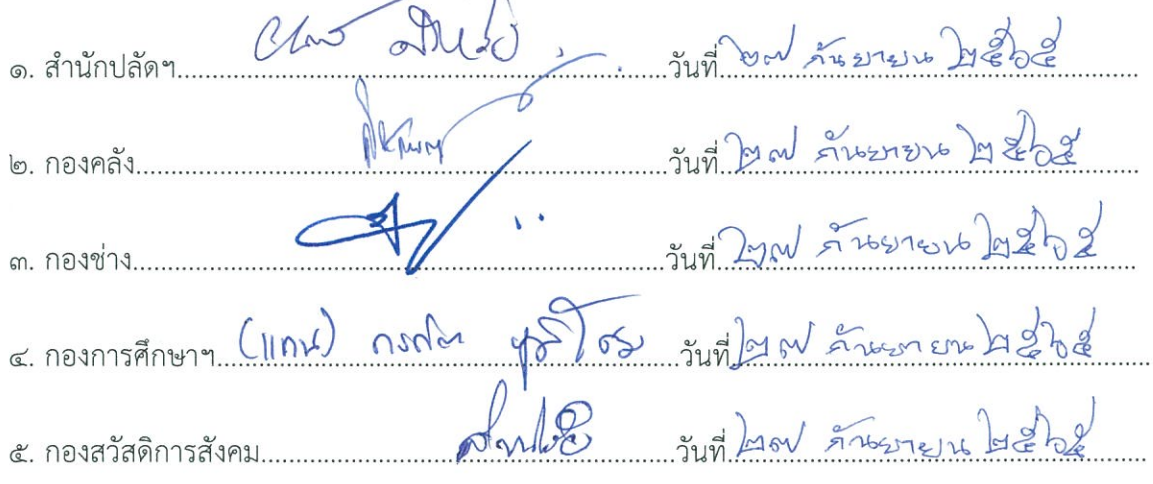 ๑. สำนักปลัดฯ..........วันที่ ๒๗ กันยายน ๒๕๖๕
๒. กองคลัง..........วันที่ ๒๗ กันยายน ๒๕๖๕
๓. กองช่าง..........วันที่ ๒๗ กันยายน ๒๕๖๕
๔. กองการศึกษาฯ (แทน) ..........วันที่ ๒๗ กันยายน ๒๕๖๕
๕. กองสวัสดิการสังคม..........วันที่ ๒๗ กันยายน ๒๕๖๕